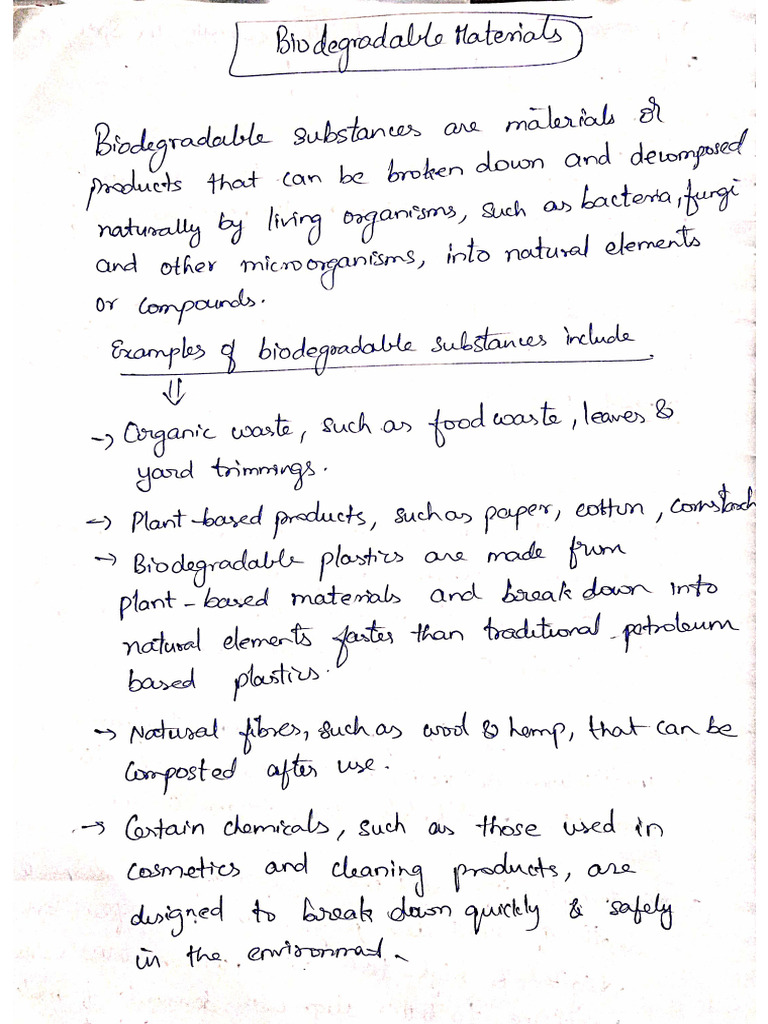 Biodegradable Materials
Biodegradable substances are materials or
products that can be broken down and decomposed
naturally by living organisms, such as bacteria, fungi
and other microorganisms, into natural elements
or compounds.
Examples of biodegradable substances include
⇓
→ Organic waste, such as food waste, leaves &
yard trimmings.
→ Plant-based products, such as paper, cotton, cornstarch
→ Biodegradable plastics are made from
plant-based materials and break down into
natural elements faster than traditional petroleum
based plastics.
→ Natural fibres, such as wool & hemp, that can be
composted after use.
→ Certain chemicals, such as those used in
cosmetics and cleaning products, are
designed to break down quickly & safely
in the environmat.